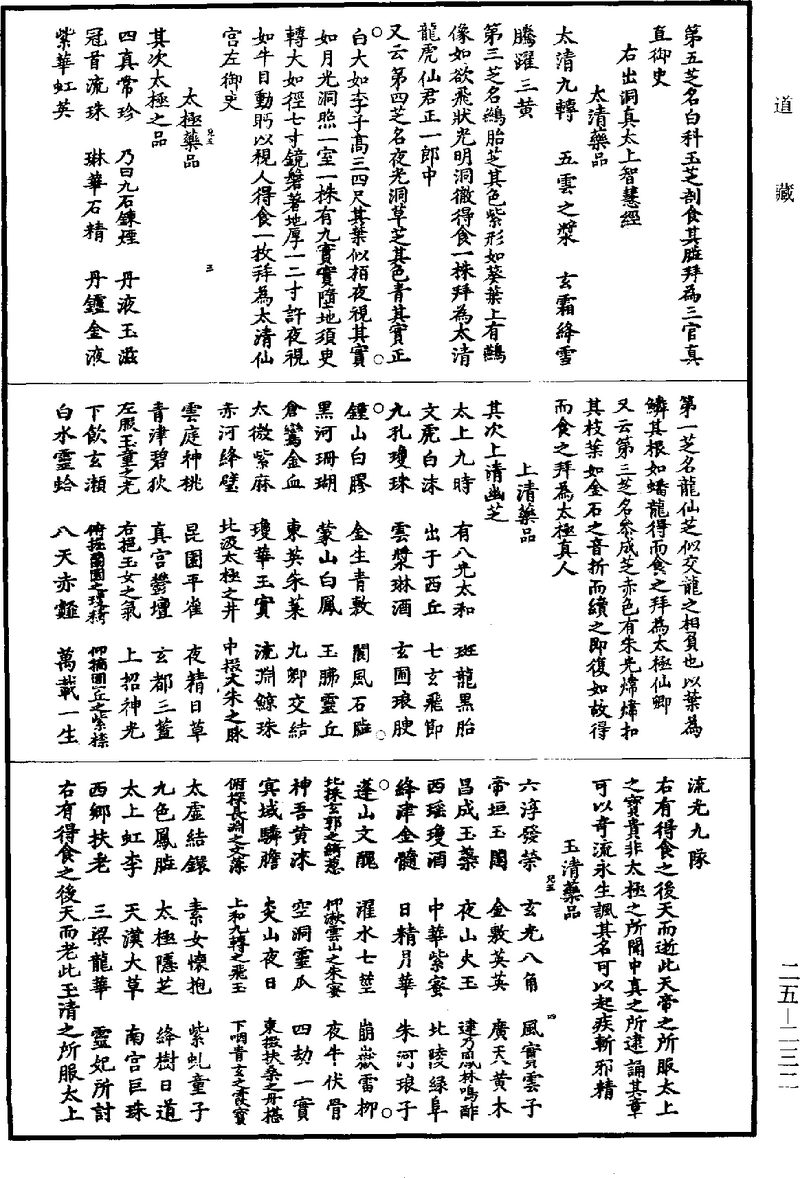 道藏
第五芝名白科玉芝剖食其腦拜為三官真
直御史
右出洞真太上智慧經
太清藥品
太清九轉 五雲之漿 玄霜絳雪
騰躍三黃
第三芝名鷦胎芝其色紫形如葵葉上有鷦
像如欲飛狀光明洞徹得食一株拜為太清
龍虎仙君正一郎中
又云第四芝名夜光洞草芝其色青其實正
白大如李子高三四尺其葉似栢夜視其實
如月光洞照一室一株有九實實墮地須臾
轉大如徑七寸鏡盤著地厚一二寸許夜視
如牛目動眄以視人得食一枚拜為太清仙
宮左御史
三
太極藥品
其次太極之品
四真常珍 乃曰九石鍊煙 丹液玉滋
冠首流珠 琳華石精 丹鑪金液
紫華虹英
第一芝名龍仙芝似交龍之相負也以葉為
鱗其根如蟠龍得而食之拜為太極仙卿
又云第三芝名參成芝赤色有朱光煒煒扣
其枝葉如金石之音折而續之即復如故得
而食之拜為太極真人
上清藥品
其次上清幽芝
太上九時 有八光太和 斑龍黑胎
文虎白沫 出于西丘 七玄飛節
九孔瓊珠 雲漿琳酒 玄圃琅腴
鍾山白膠 金生青敷 閬風石腦
黑河珊瑚 蒙山白鳳 玉胇靈丘
倉鸞金血 東英朱菜 九節交結
太微紫麻 瓊華玉實 流淵鯨珠
赤河絳璧 北汲太極之井 中掇大朱之脉
雲庭神桃 昆園平雀 夜精日草
青津碧荻 真宮鬱壇 玄都三藎
左服玉童之光 右挹玉女之氣 上招神光
下飲玄瀨 俯掇蘭園之瓊精 仰摘圓丘之紫柰
白水靈蛤 八天赤薤 萬載一生
流光九隊
右有得食之後天而逝此天帝之所服太上
之寶貴非太極之所聞中真之所逮誦其章
可以寄流永生諷其名可以起疾斬邪精
玉清藥品
四
六淳發榮 玄光八角 風實雲子
帝垣玉閶 金敷英英 廣天黃木
昌成玉蘂 夜山火玉 逮乃鳳林鳴酢
西瑤瓊酒 中華紫蜜 北陵綠阜
絳津金髓 日精月華 朱河琅子
蓬山文醜 濯水七莖 崩嶽雷柳
北採玄郭之綺蔥 仰漱雲山之朱蜜 夜牛伏骨
神吾黃沫 空洞靈瓜 四劫一實
賓域驎膽 炎山夜日 東掇扶桑之丹椹
俯探長淵之文藻 上和九轉之飛玉 下咽青玄之霞寶
太虛結鐶 素女懷抱 紫虬童子
九色鳳腦 太極隱芝 絳樹日道
太上虹李 天漢大草 南宮巨珠
西鄉扶老 三梁龍華 靈妃所討
右有得食之後天而老此玉清之所服太上
二五—二三二